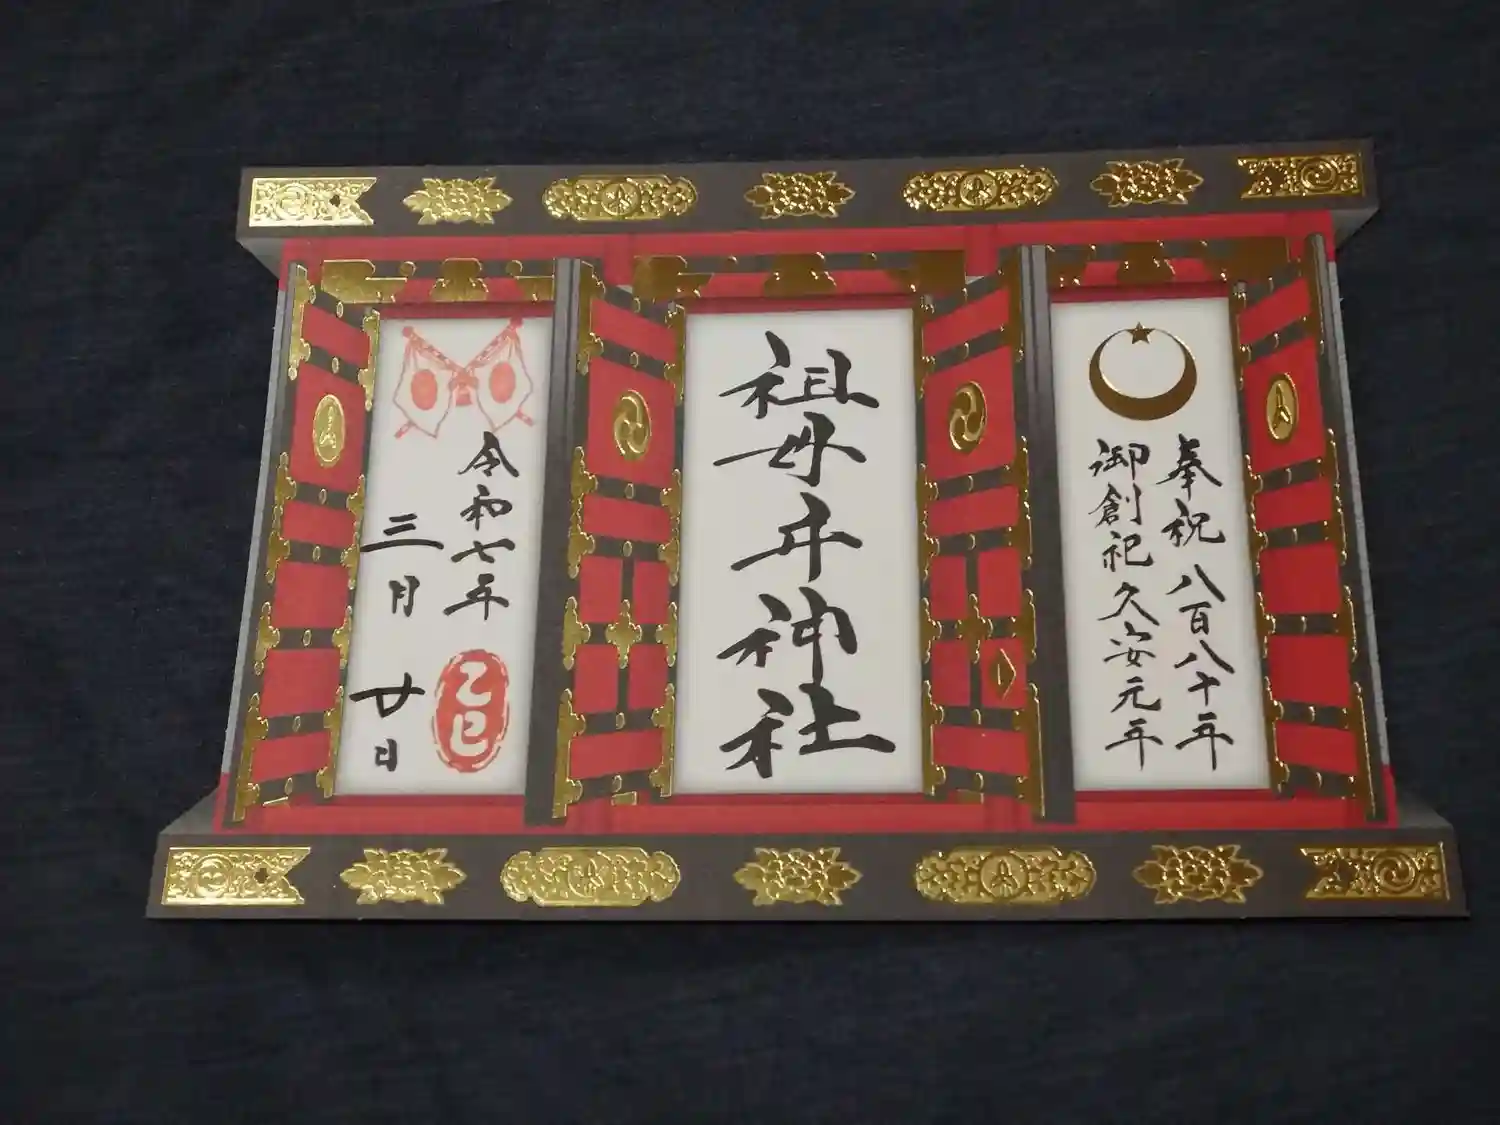 奉祝 八百八十年
御創祀久安元年
祖母井神社
令和七年
三月 廿日
乙巳